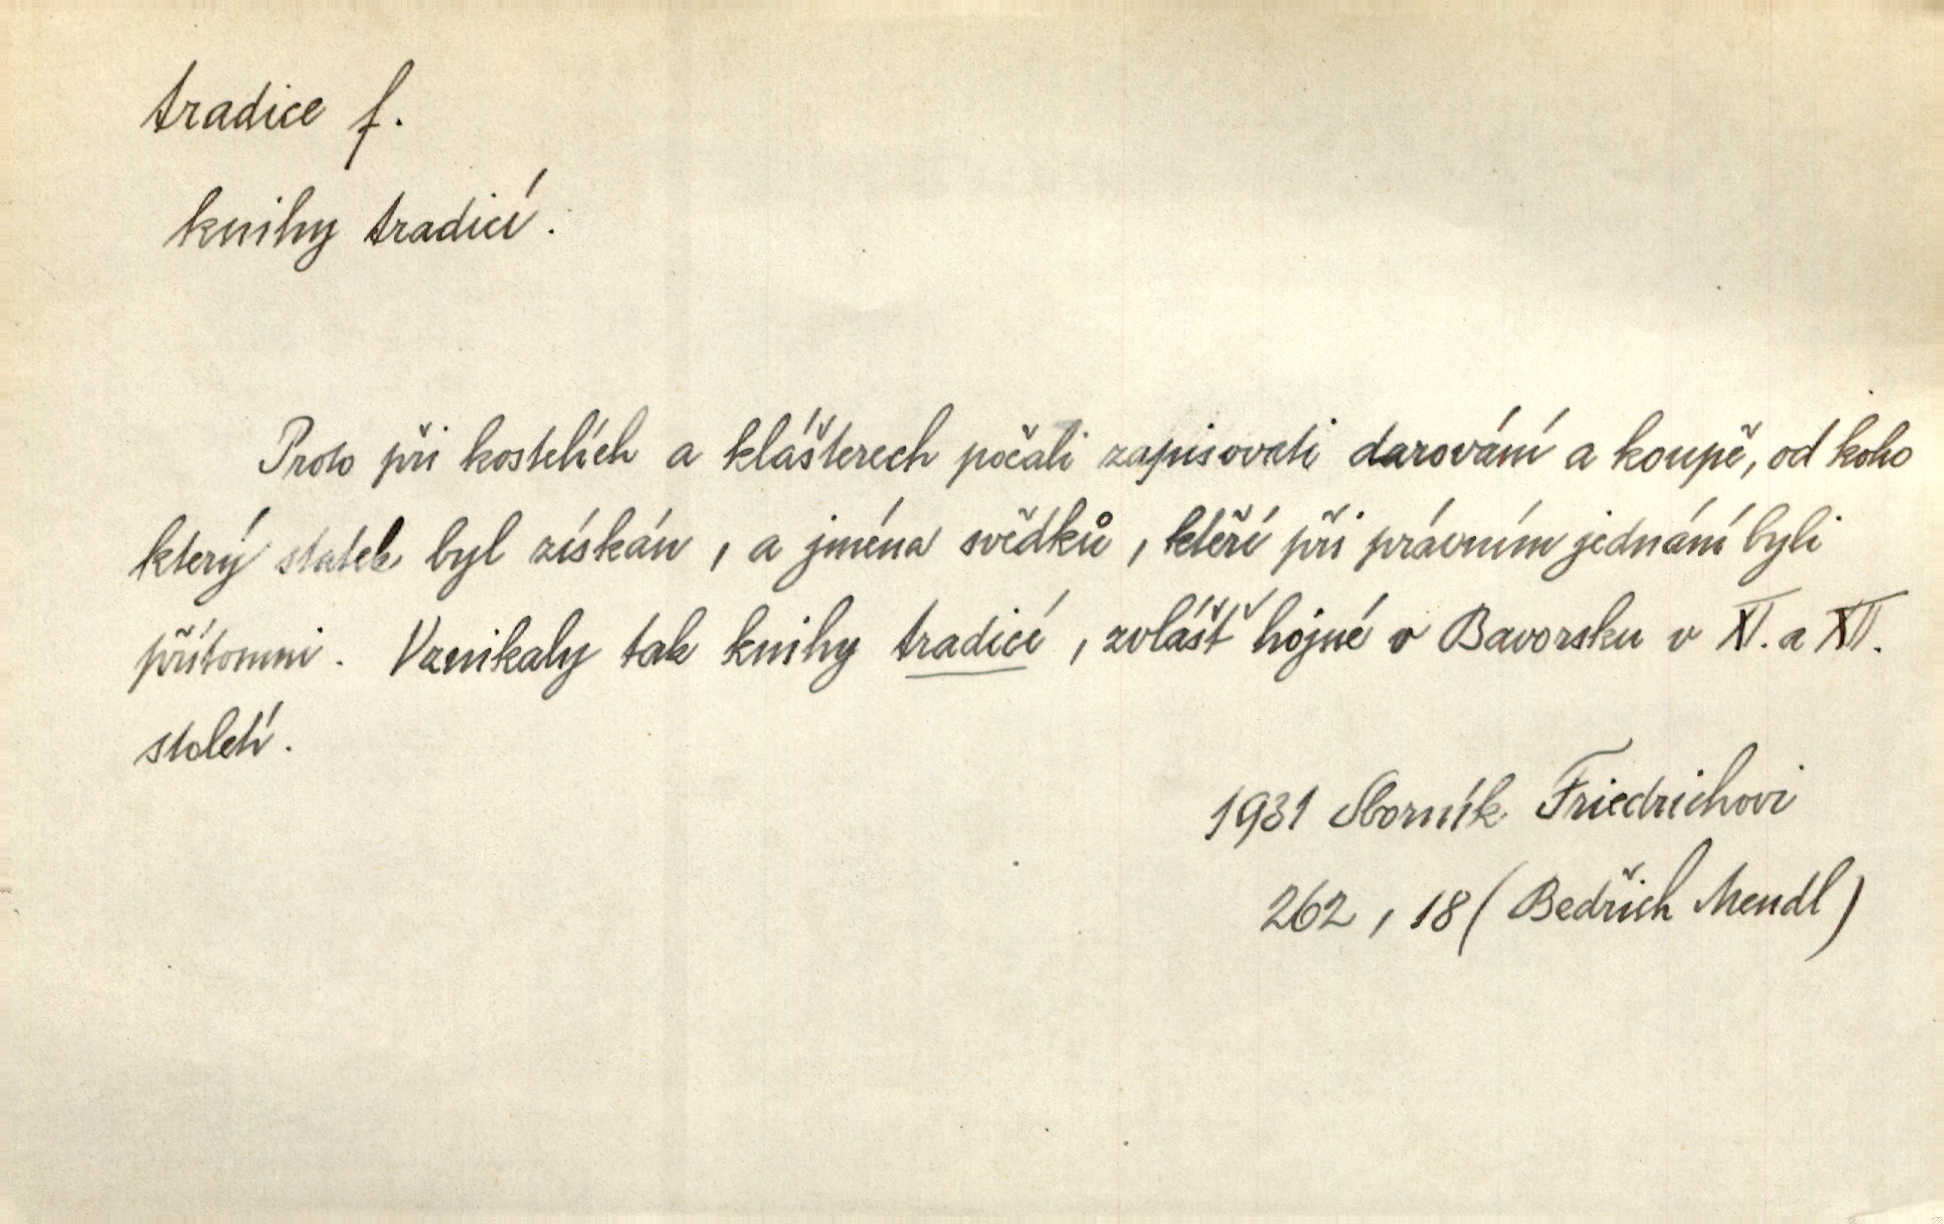 tradice f.
knihy tradicí.
Proto při kostelích a klášterech počali zapisovati darování a koupě, od koho
který statek byl získán, a jména svědků, kteří při právním jednání byli
přítomni. Vznikaly tak knihy tradicí, zvlášť hojné v Bavorsku v XI. a XII.
století.
1931 Sborník Friedrichovi
262, 18 (Bedřich Mendl)